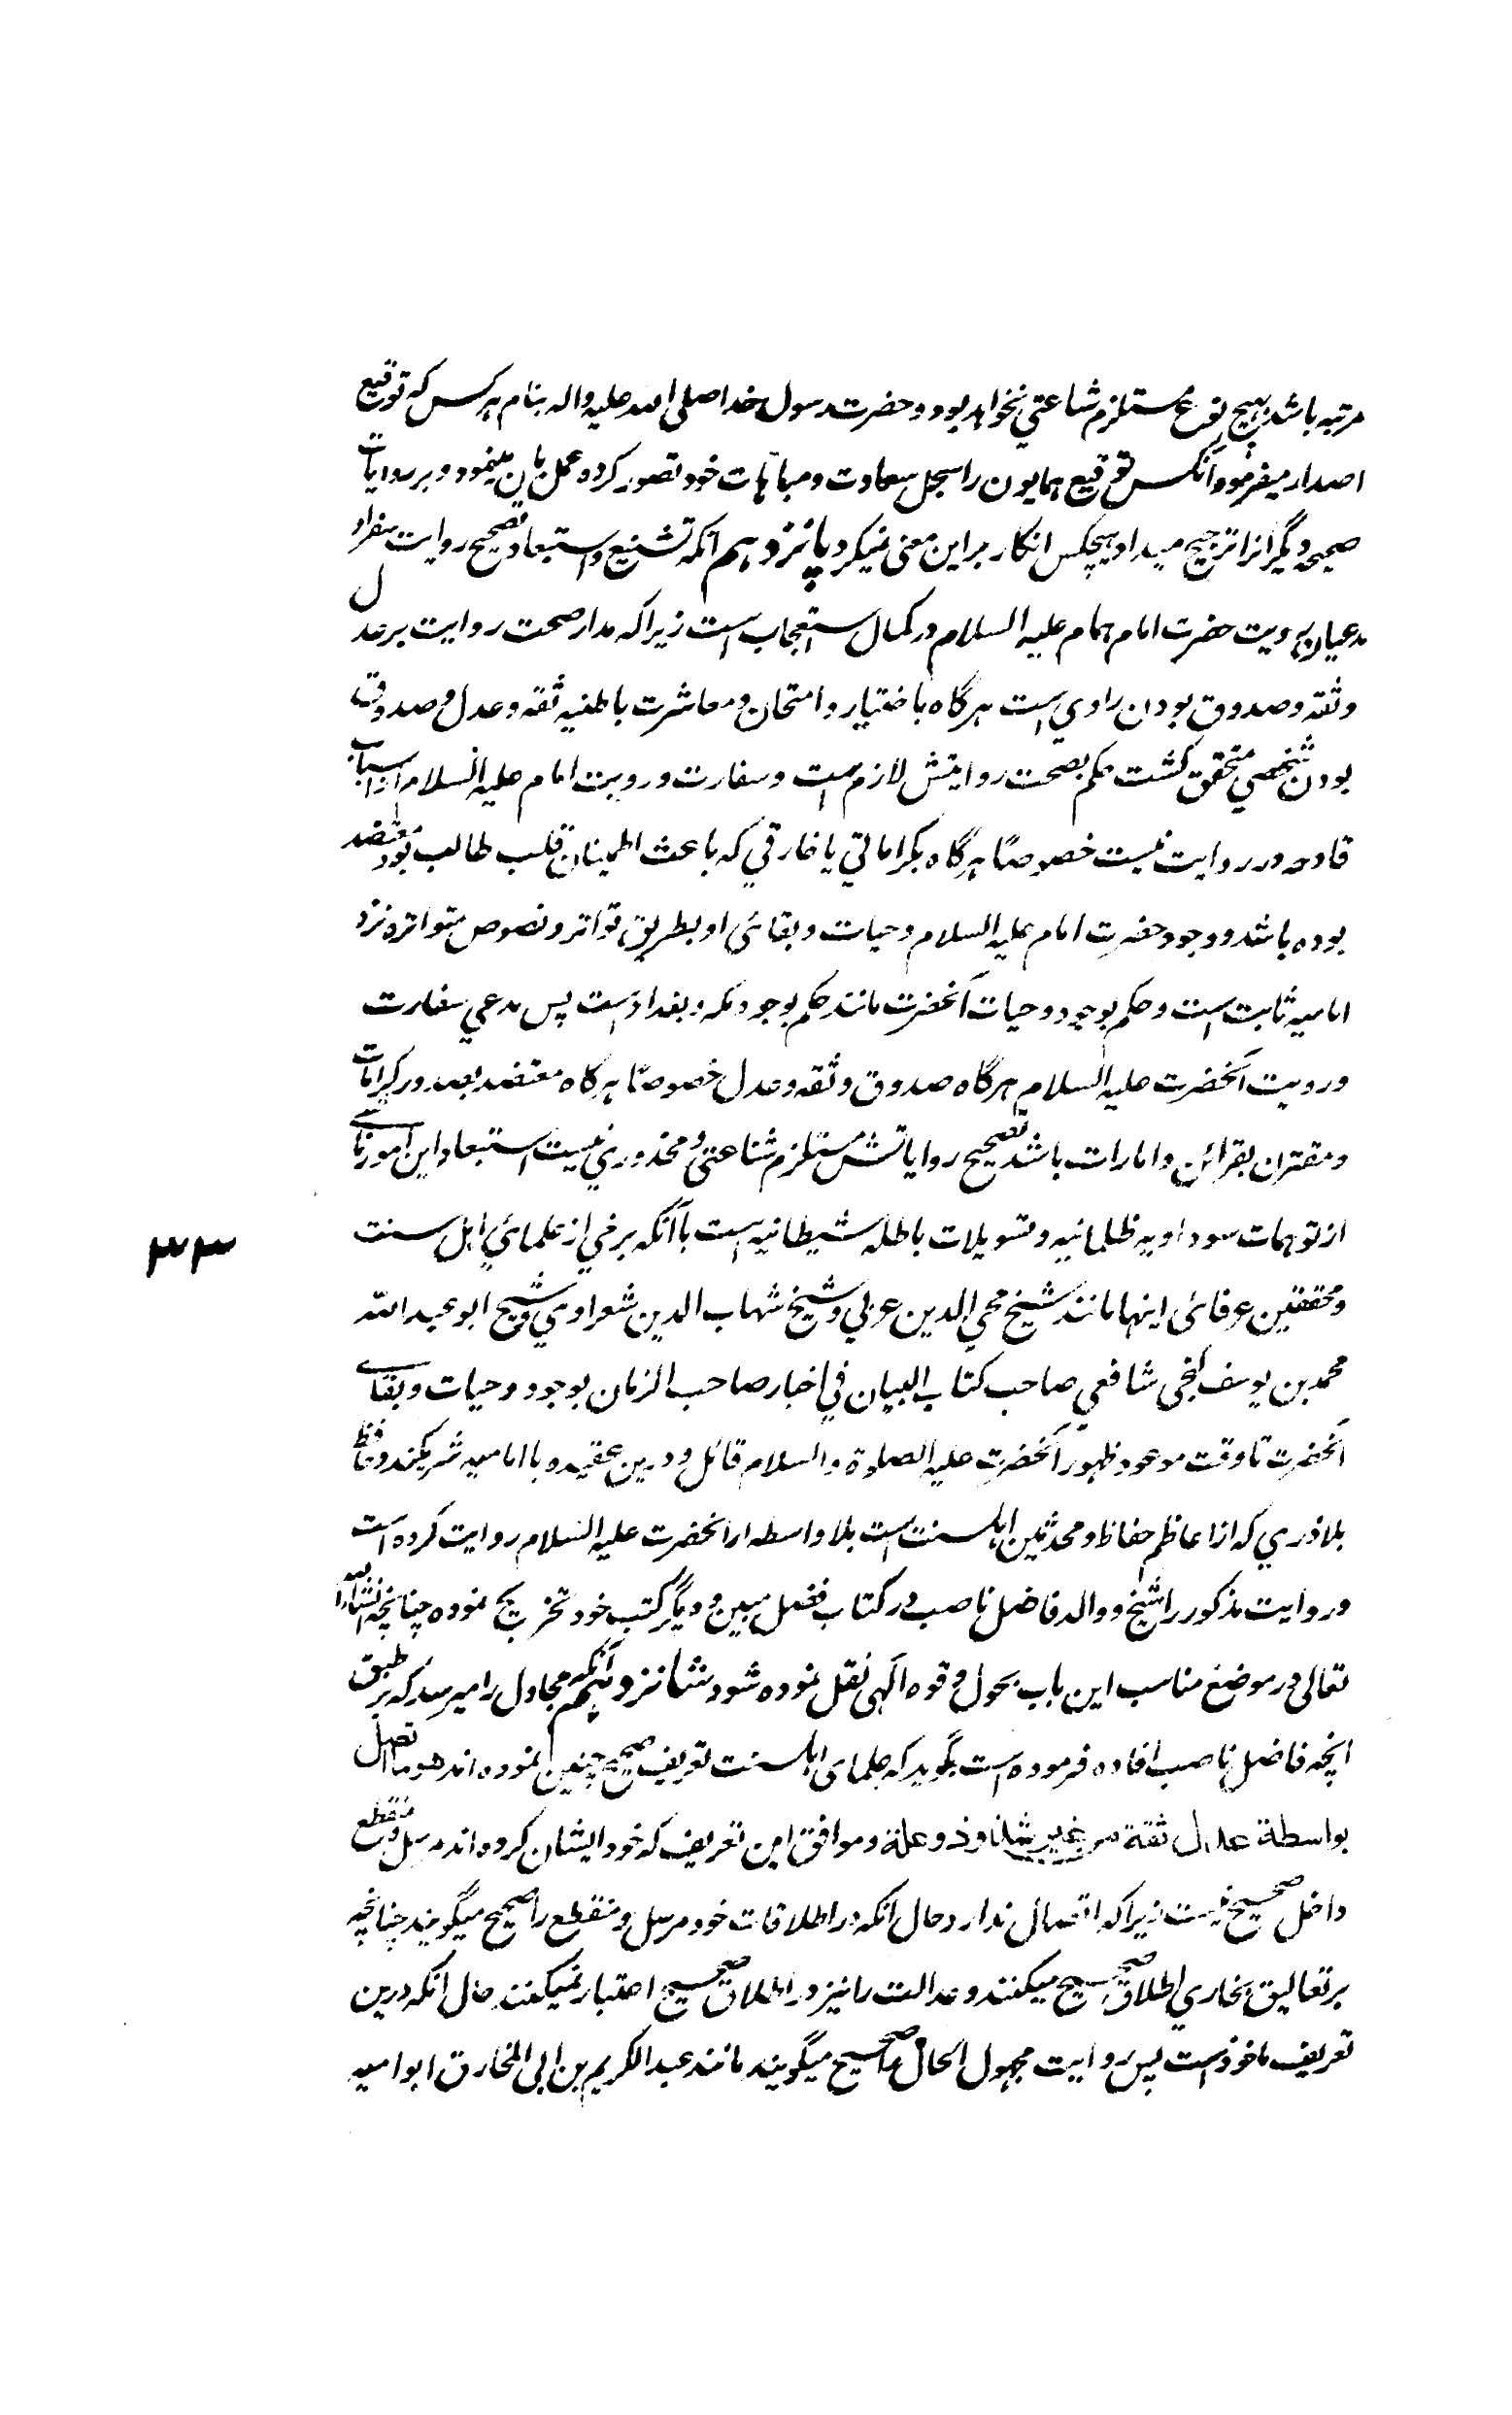 مرتبه باشد بهیچ نوع مستلزم شناعتی نخواهد بود و حضرت رسول خدا صلی الله علیه واله بنام هرکس که توقیع
اصدار میفرمود و آنکس توقیع همایون را سجل سعادت و مباهات خود تصور کرده عمل بآن مینمود و بر روایات
صحیحه دیگر انرا ترجیح میداد هیچکس انکار بر این معنی نمیکرد پانزدهم آنکه تشنیع و استبعاد تصحیح روایت سفراء
مدعیان رویت حضرت امام همام علیه السلام در کمال استعجاب است زیرا که مدار صحت روایت بر عدل
و ثقه و صدوق بودن راوی است هرگاه باختیار و امتحان و معاشرت باطنیه ثقه و عدل و صدوق
بودن شخصی متحقق گشت حکم بصحت روایتش لازم است و سفارت و رویت امام علیه السلام از اسباب
قادحه در روایت نیست خصوصًا هرگاه بکراماتی یا خارقی که باعث اطمینان قلب طالب بود معتضد
بوده باشد و وجود حضرت امام علیه السلام و حیات و بقائی او بطریق تواتر و نصوص متواتره نزد
امامیه ثابت است و حکم بوجود و حیات آنحضرت مانند حکم بوجود مکه و بغداد است پس مدعی سفارت
و رویت آنحضرت علیه السلام هرگاه صدوق و ثقه و عدل خصوصًا هرگاه معتضد بصدور کرامات
و مقترن بقرائن و امارات باشد تصحیح روایاتش مستلزم شناعتی و محذوری نیست استبعاد این امور ناشی
از توهمات سوداویه ظلمانیه و تسویلات باطله شیطانیه است با آنکه برخی از علمائی اهل سنت
و محققین عرفائی اینها مانند شیخ محی الدین عربی و شیخ شهاب الدین شعراوی و شیخ ابو عبدالله
محمد بن یوسف گنجی شافعی صاحب کتاب البیان فی اخبار صاحب الزمان بوجود و حیات و بقاے
آنحضرت تا وقت موعود ظهور آنحضرت علیه الصلوة والسلام قائل و درین عقیده با امامیه شریکند و حافظ
بلاذری که از اعاظم حفاظ و محدثین اهلسنت است بلا واسطه از انحضرت علیه السلام روایت کرده است
و روایت مذکور را شیخ و والد فاضل ناصب در کتاب فضل مبین و دیگر کتب خود تخریج نموده چنانچه انشاء الله
تعالی در موضع مناسب این باب بحول و قوه الهی نقل نموده شود شانزدهم آنکه مجادل را میرسد که بر طبق
انچه فاضل ناصب افاده فرموده است بگوید که علمای اهلسنت تعریف صحیح چنین نموده اند هو ما اتصل
بواسطة عدل ثقة من غیر شذوذ و علة و موافق این تعریف که خود ایشان کرده اند مرسل و منقطع
داخل صحیح نیست زیرا که اتصال ندارد و حال آنکه در اطلاقات خود مرسل و منقطع را صحیح میگویند چنانچه
بر تعالیق بخاری اطلاق صحیح میکنند و عدالت را نیز در اطلاق صحیح اعتبار نمیکنند حال انکه درین
تعریف ماخوذ است پس روایت مجهول الحال را صحیح میگویند مانند عبدالکریم بن ابی المخارق ابو امیه
۳۳